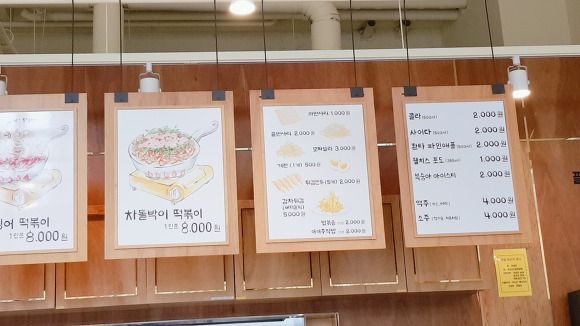 징어 떡볶이
1인분 8,000원
차돌박이 떡볶이
1인분 8,000원
라면사리 1,000원
쫄면사리 2,000원
모짜렐라 3,000원
계란 (1개) 500원
튀김만두 (5개) 2,000원
감자튀김
5,000원
볶음밥 2,000원
야채주먹밥 2,000원
콜라 (500ml) 2,000원
사이다 (500ml) 2,000원
환타 파인애플 2,000원
웰치스 포도 1,000원
복숭아 아이스티 2,000원
맥주 4,000원
소주 4,000원